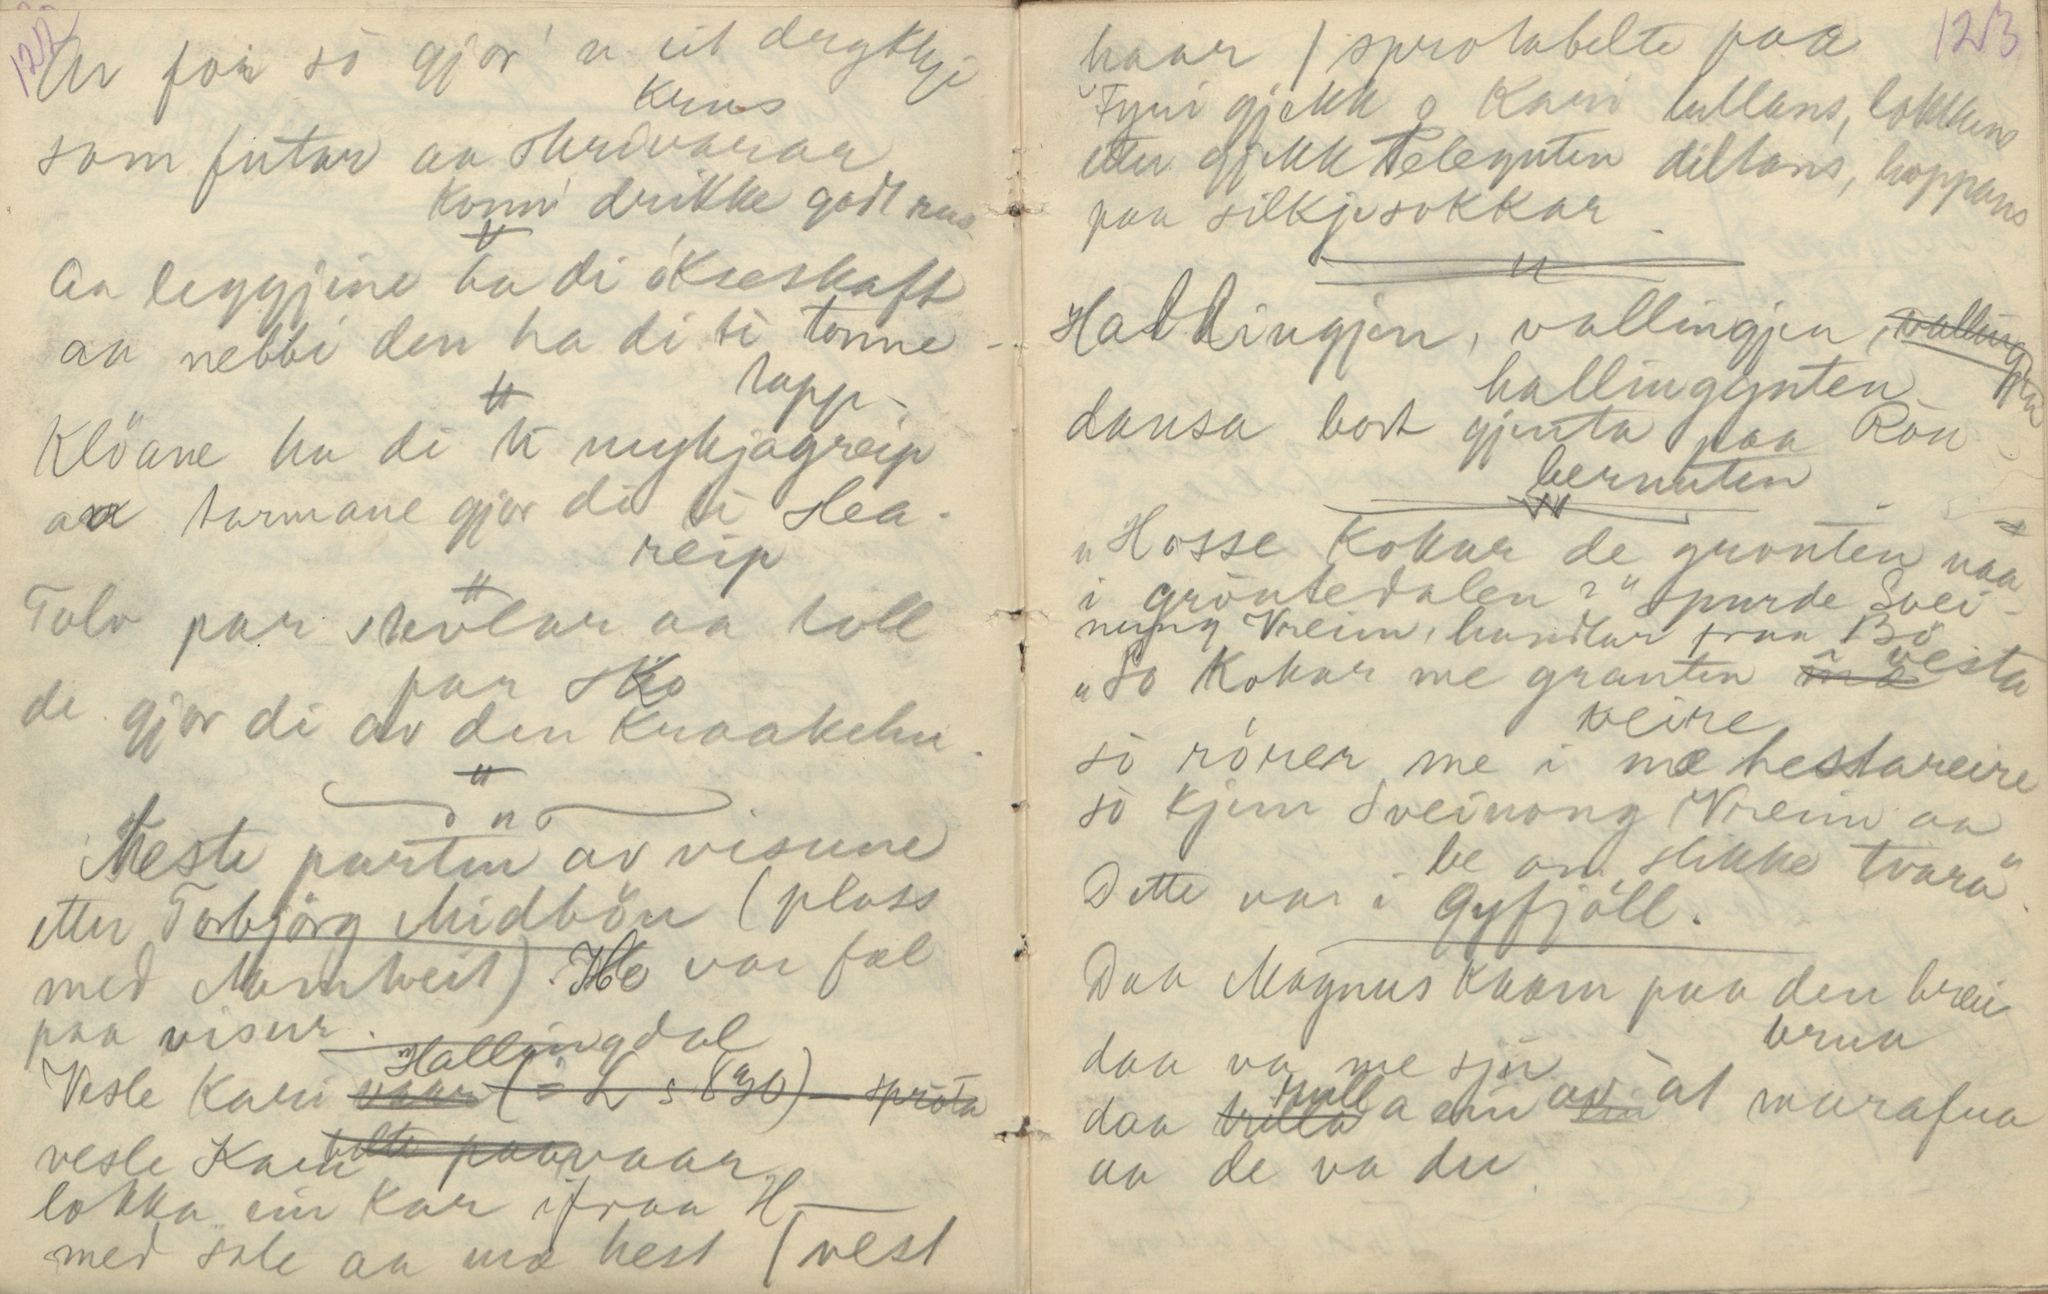 122
Av foir so gjor' n eit drykkje
krus
som futar aa skrivarar
konn' drikke godt rus
"
Aa leggjine ha di ökseskaft
aa nebbi den ha di ti tonne-
tapp
"
Klöane ha di ti mykjagreip
aa tarmane gjor di ti slea-
reip
"
Tolv par skvölar aa toll
par sko
de gjor di av den kraakehu.
"
Meste parten av visune
etter Torbjörg Midbön (plass
med Normtveit). Ho var fæl
paa visur.
"Hallingdal
Vesle Kari
vesle Kari vaar
lokka ein kar ifraa H
med sale aa mæ hest / vest
123
haar / sprotabelte paa
"Fyri gjekk o Kari tullans, lokkens
etter gjekk Telegnten diltans, hoppans
paa silkjesokkar.
"
Hallingjen, vallingjen,
hallinggnten
dansa bort gjenta paa Rön
bernuten
"
"Hosse kokar de grauten naa
i gröutedalen?" spurde Svei-
nung Vreim, handlar fraa Bö
"So kokar me grauten vesta
veire
sö rörer me i mæ hestareire
so kjem Sveinong Vreim aa
be om slikke tvara".
Dette var i Gyfjöll.
Daa Magnus kaam paa den brei
brua
daa va me sjú
daa trull a ein av át murafua
aa de va du